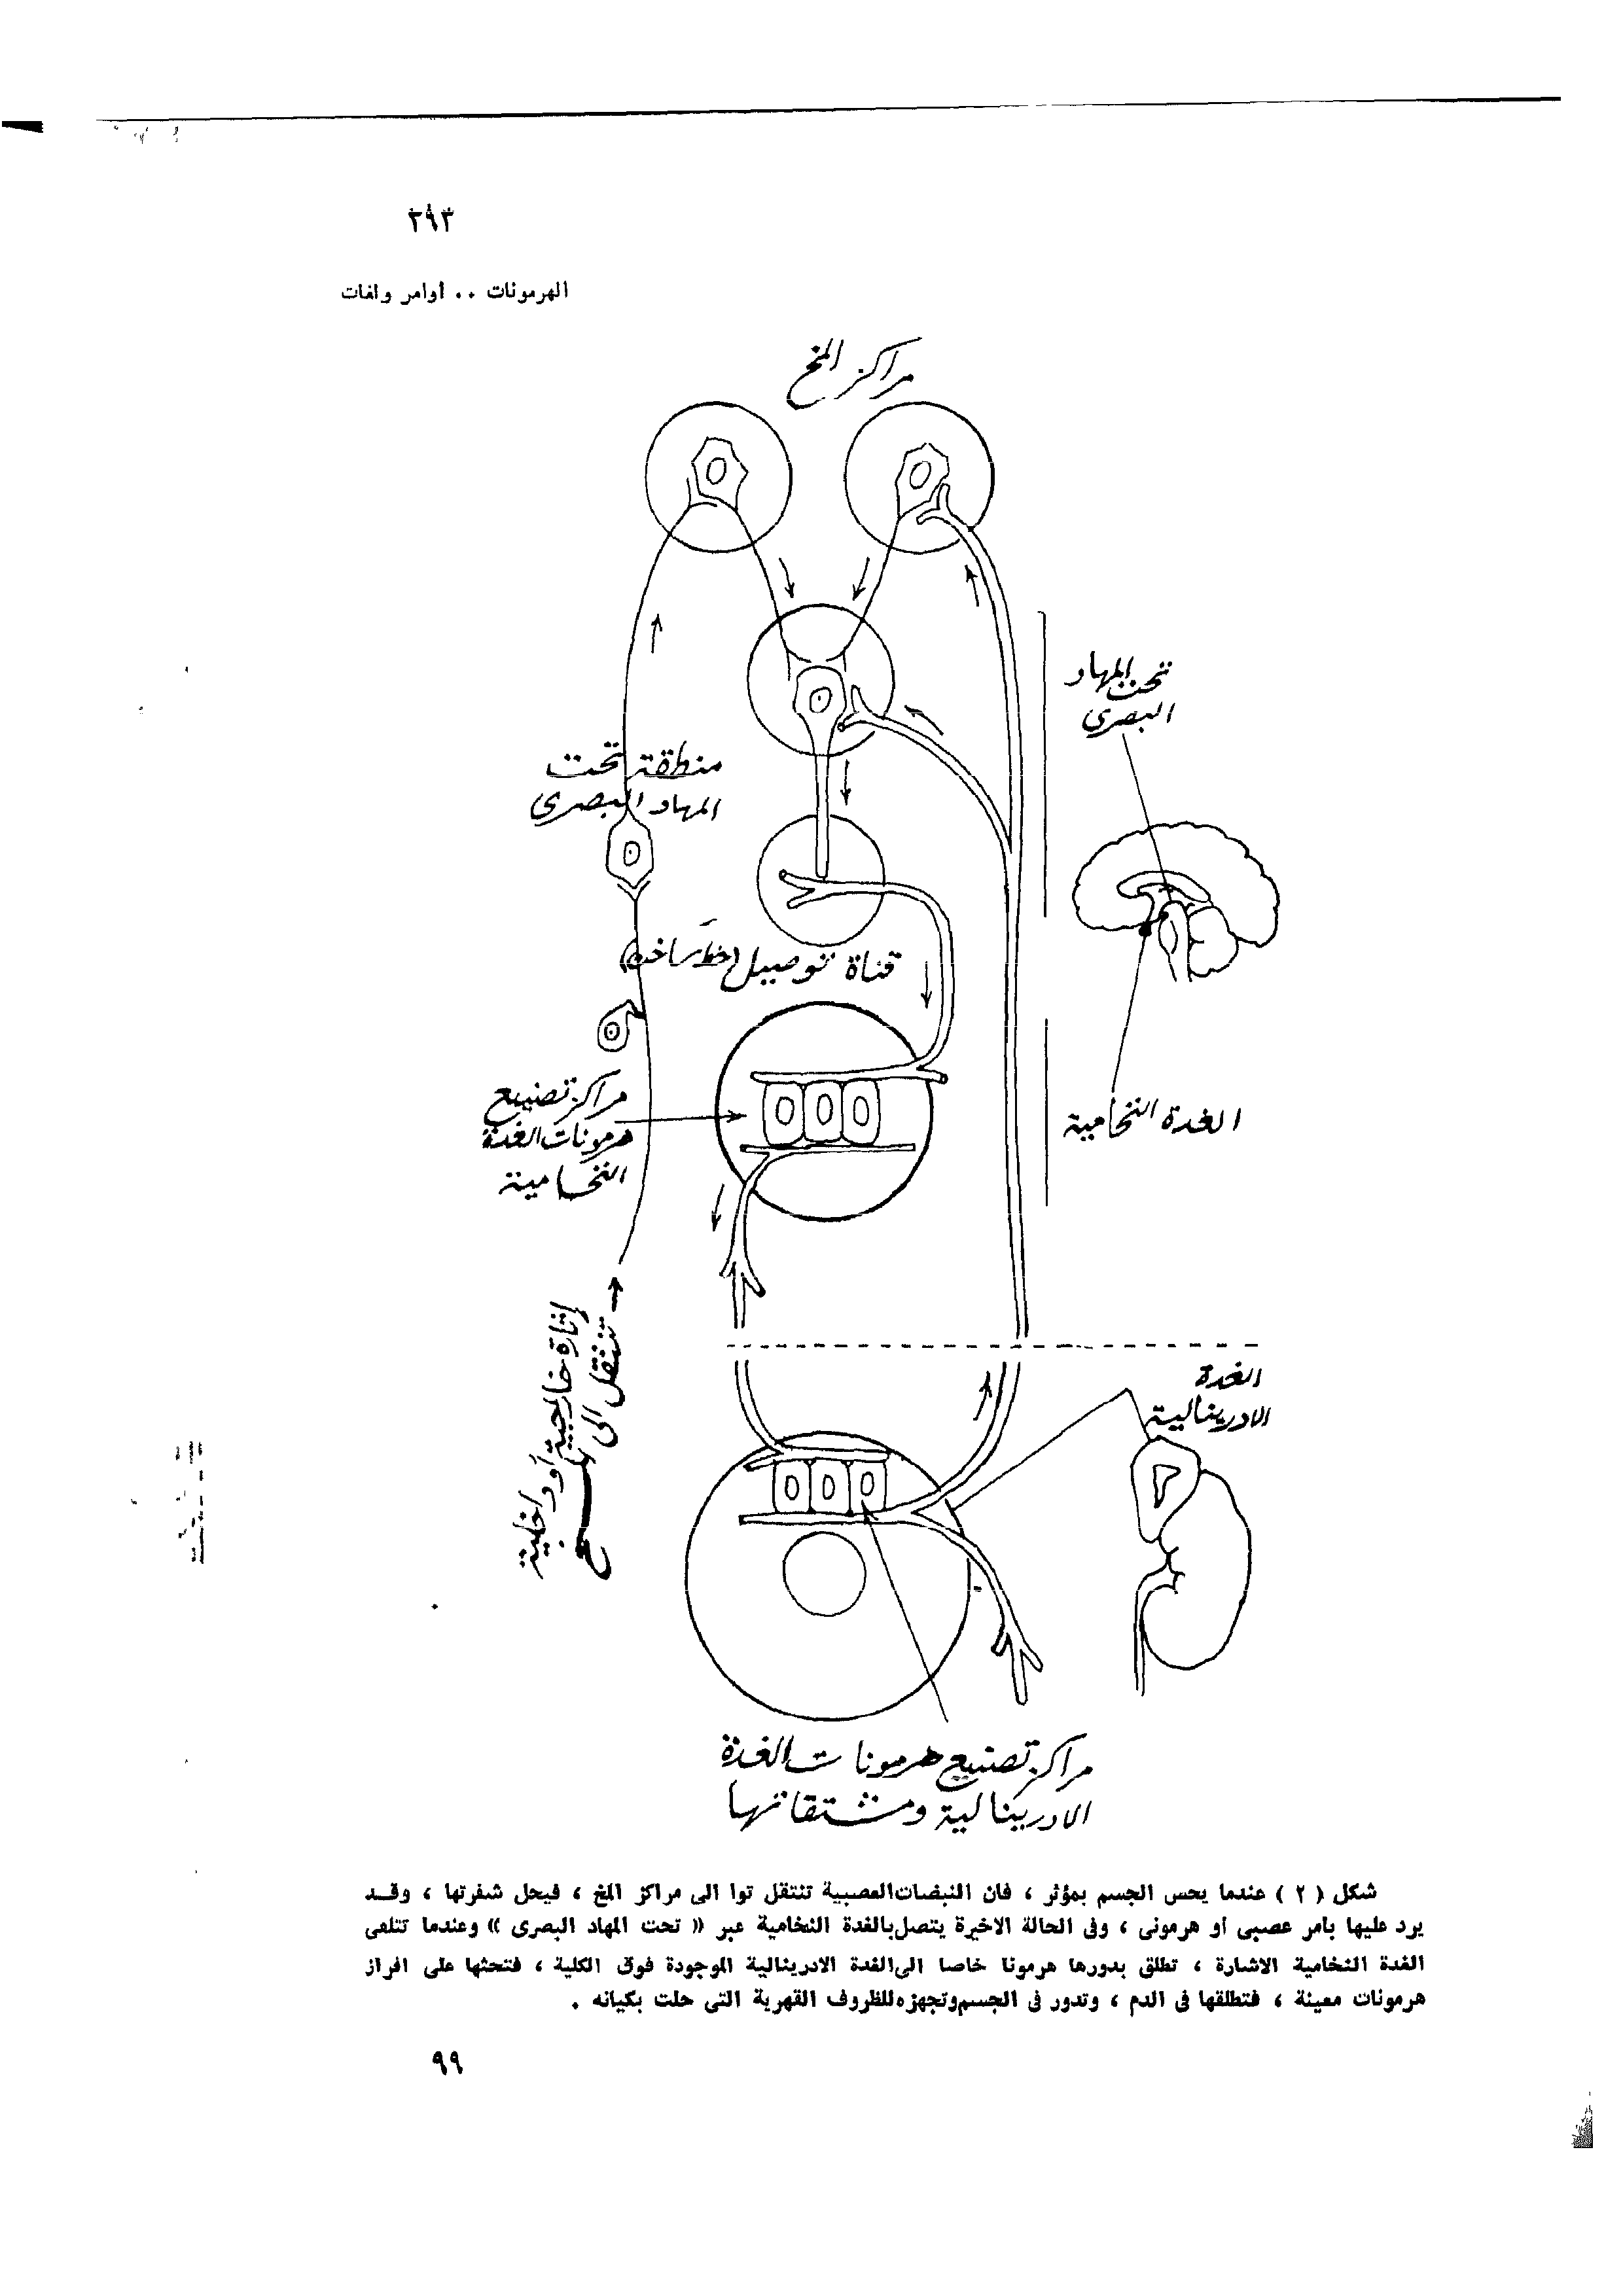 ٢٩٣
الهرمونات .. أوامر ولغات
مراكز المخ
تحت المهاد
البصرى
منطقة تحت
المهاد البصرى
قناة توصيل (خط ساخن)
مراكز تصنيع
هرمونات الغدة
النخامية
الغدة النخامية
إثارة خارجية أو داخلية
تنتقل الى
الغدة
الادرينالية
مراكز تصنيع هرمونات الغدة
الادرينالية ومشتقاتها
شكل ( ٢ ) عندما يحس الجسم بمؤثر ، فان النبضات العصبية تنتقل توا الى مراكز المخ ، فيحل شفرتها ، وقد
يرد عليها بامر عصبى او هرمونى ، وفى الحالة الاخيرة يتصل بالغدة النخامية عبر « تحت المهاد البصرى » وعندما تتلقى
الغدة النخامية الاشارة ، تطلق بدورها هرمونا خاصا الى الغدة الادرينالية الموجودة فوق الكلية ، فتحثها على افراز
هرمونات معينة ، فتطلقها فى الدم ، وتدور فى الجسم وتجهزه للظروف القهرية التى حلت بكيانه .
٩٩